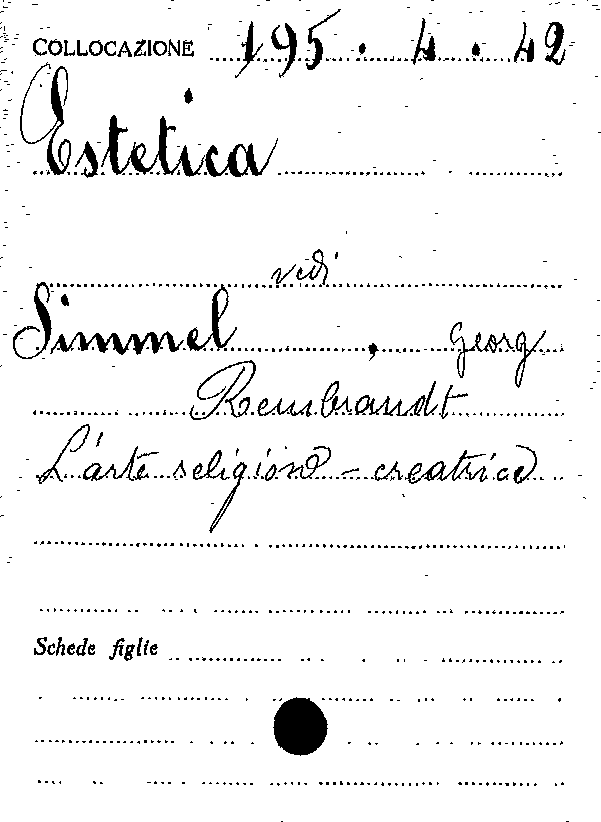 COLLOCAZIONE 195 . 4 . 42
Estetica
vedi
Simmel , Georg
Rembrandt
L'arte religiosa - creatrice
Schede figlie